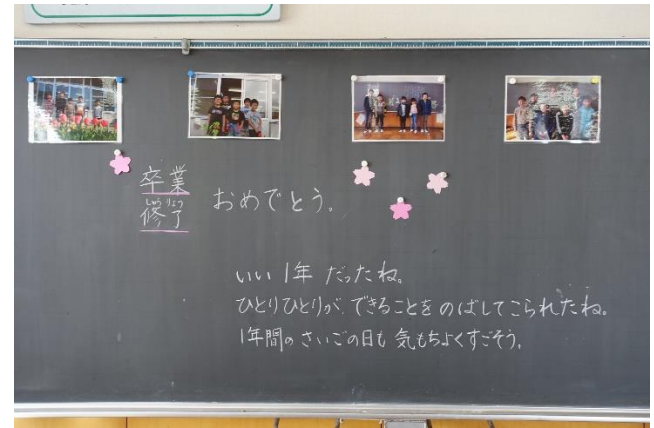 卒業
修了 おめでとう。
しゅうりょう
いい 1年 だったね。
ひとりひとりが、できることを のばしてこられたね。
1年間の さいごの日も 気もちよくすごそう。